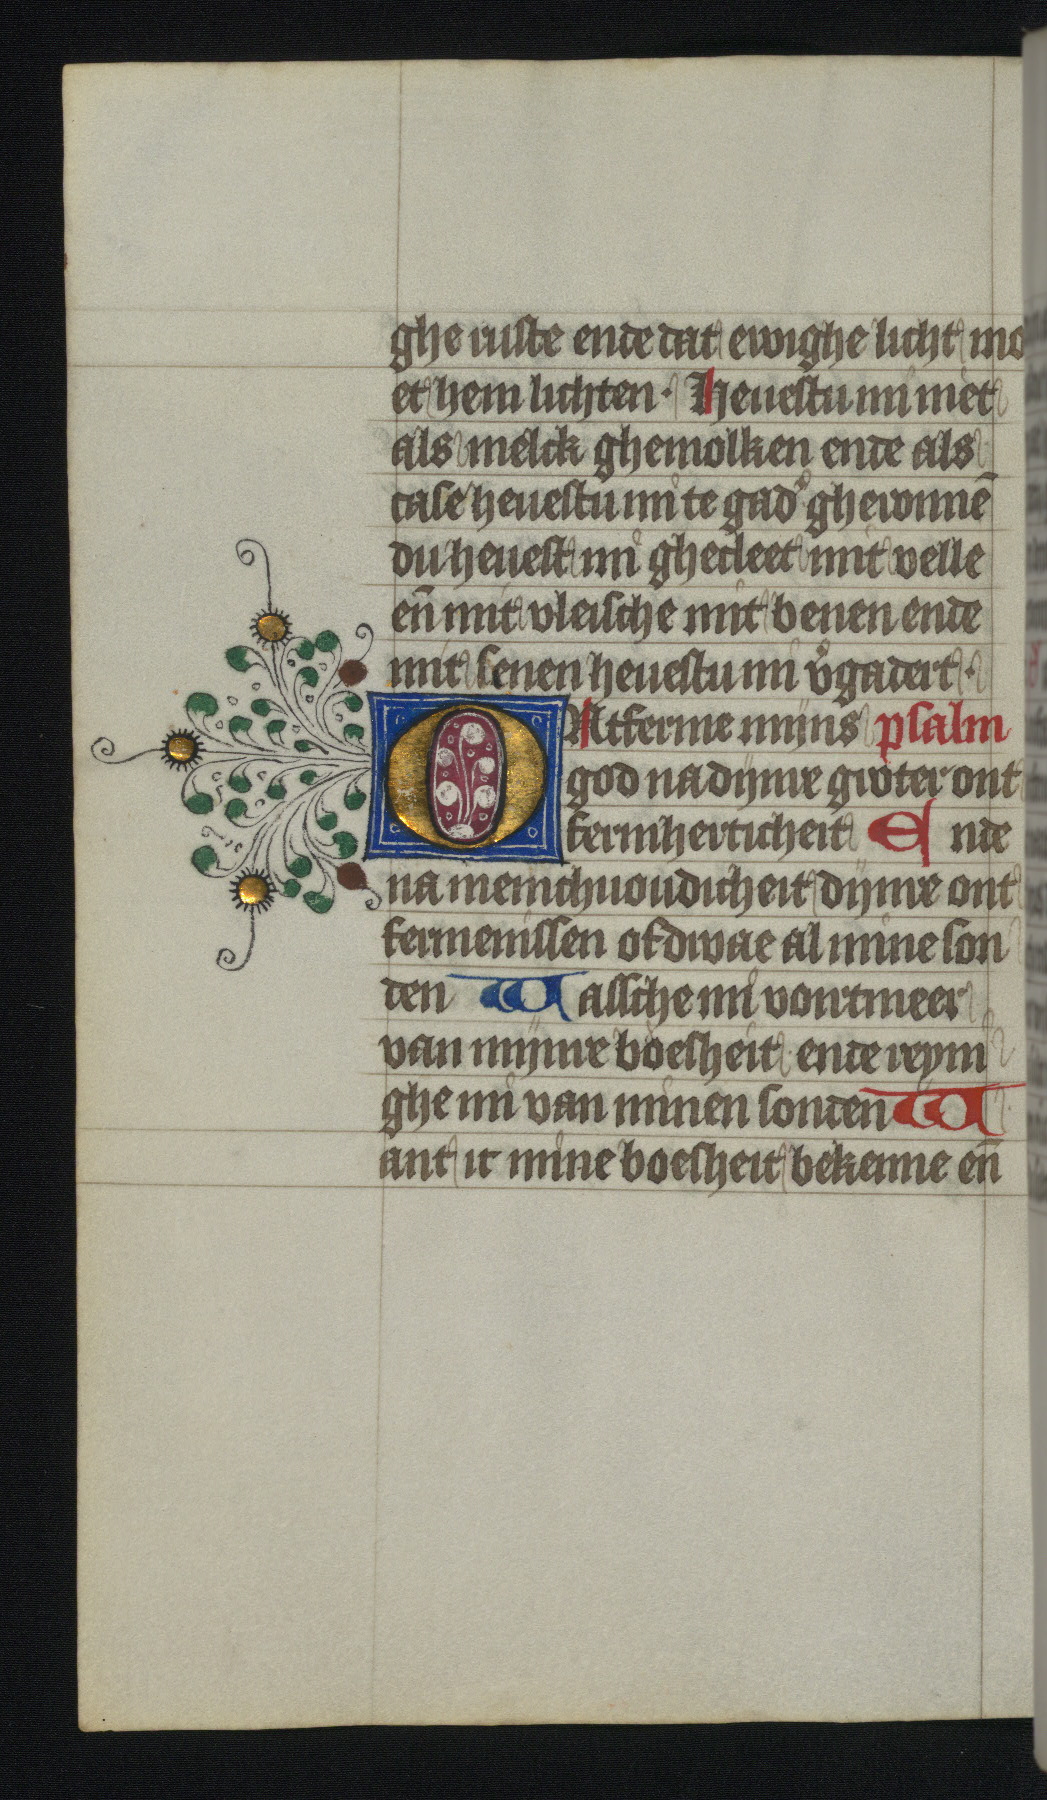 ghe ruste ende dat ewighe licht mo
et hem lichten. Heuestu mi niet
als melck ghemolken ende als
case heuestu mi te gad' gheronnē
du heuest mi ghecleet mit velle
eñ mit vleische mit benen ende
mit senen heuestu mi v'gadert.
Ntferme mijns psalm
O god na dijnre groter ont
fermherticheit Ende
na menichuoudicheit dijnre ont
fermenissen ofdwae al mine son
den Wassche mi voirtmeer
van mijnre boesheit ende reyni
ghe mi van minen sonden W
ant ic mine boesheit bekenne eñ